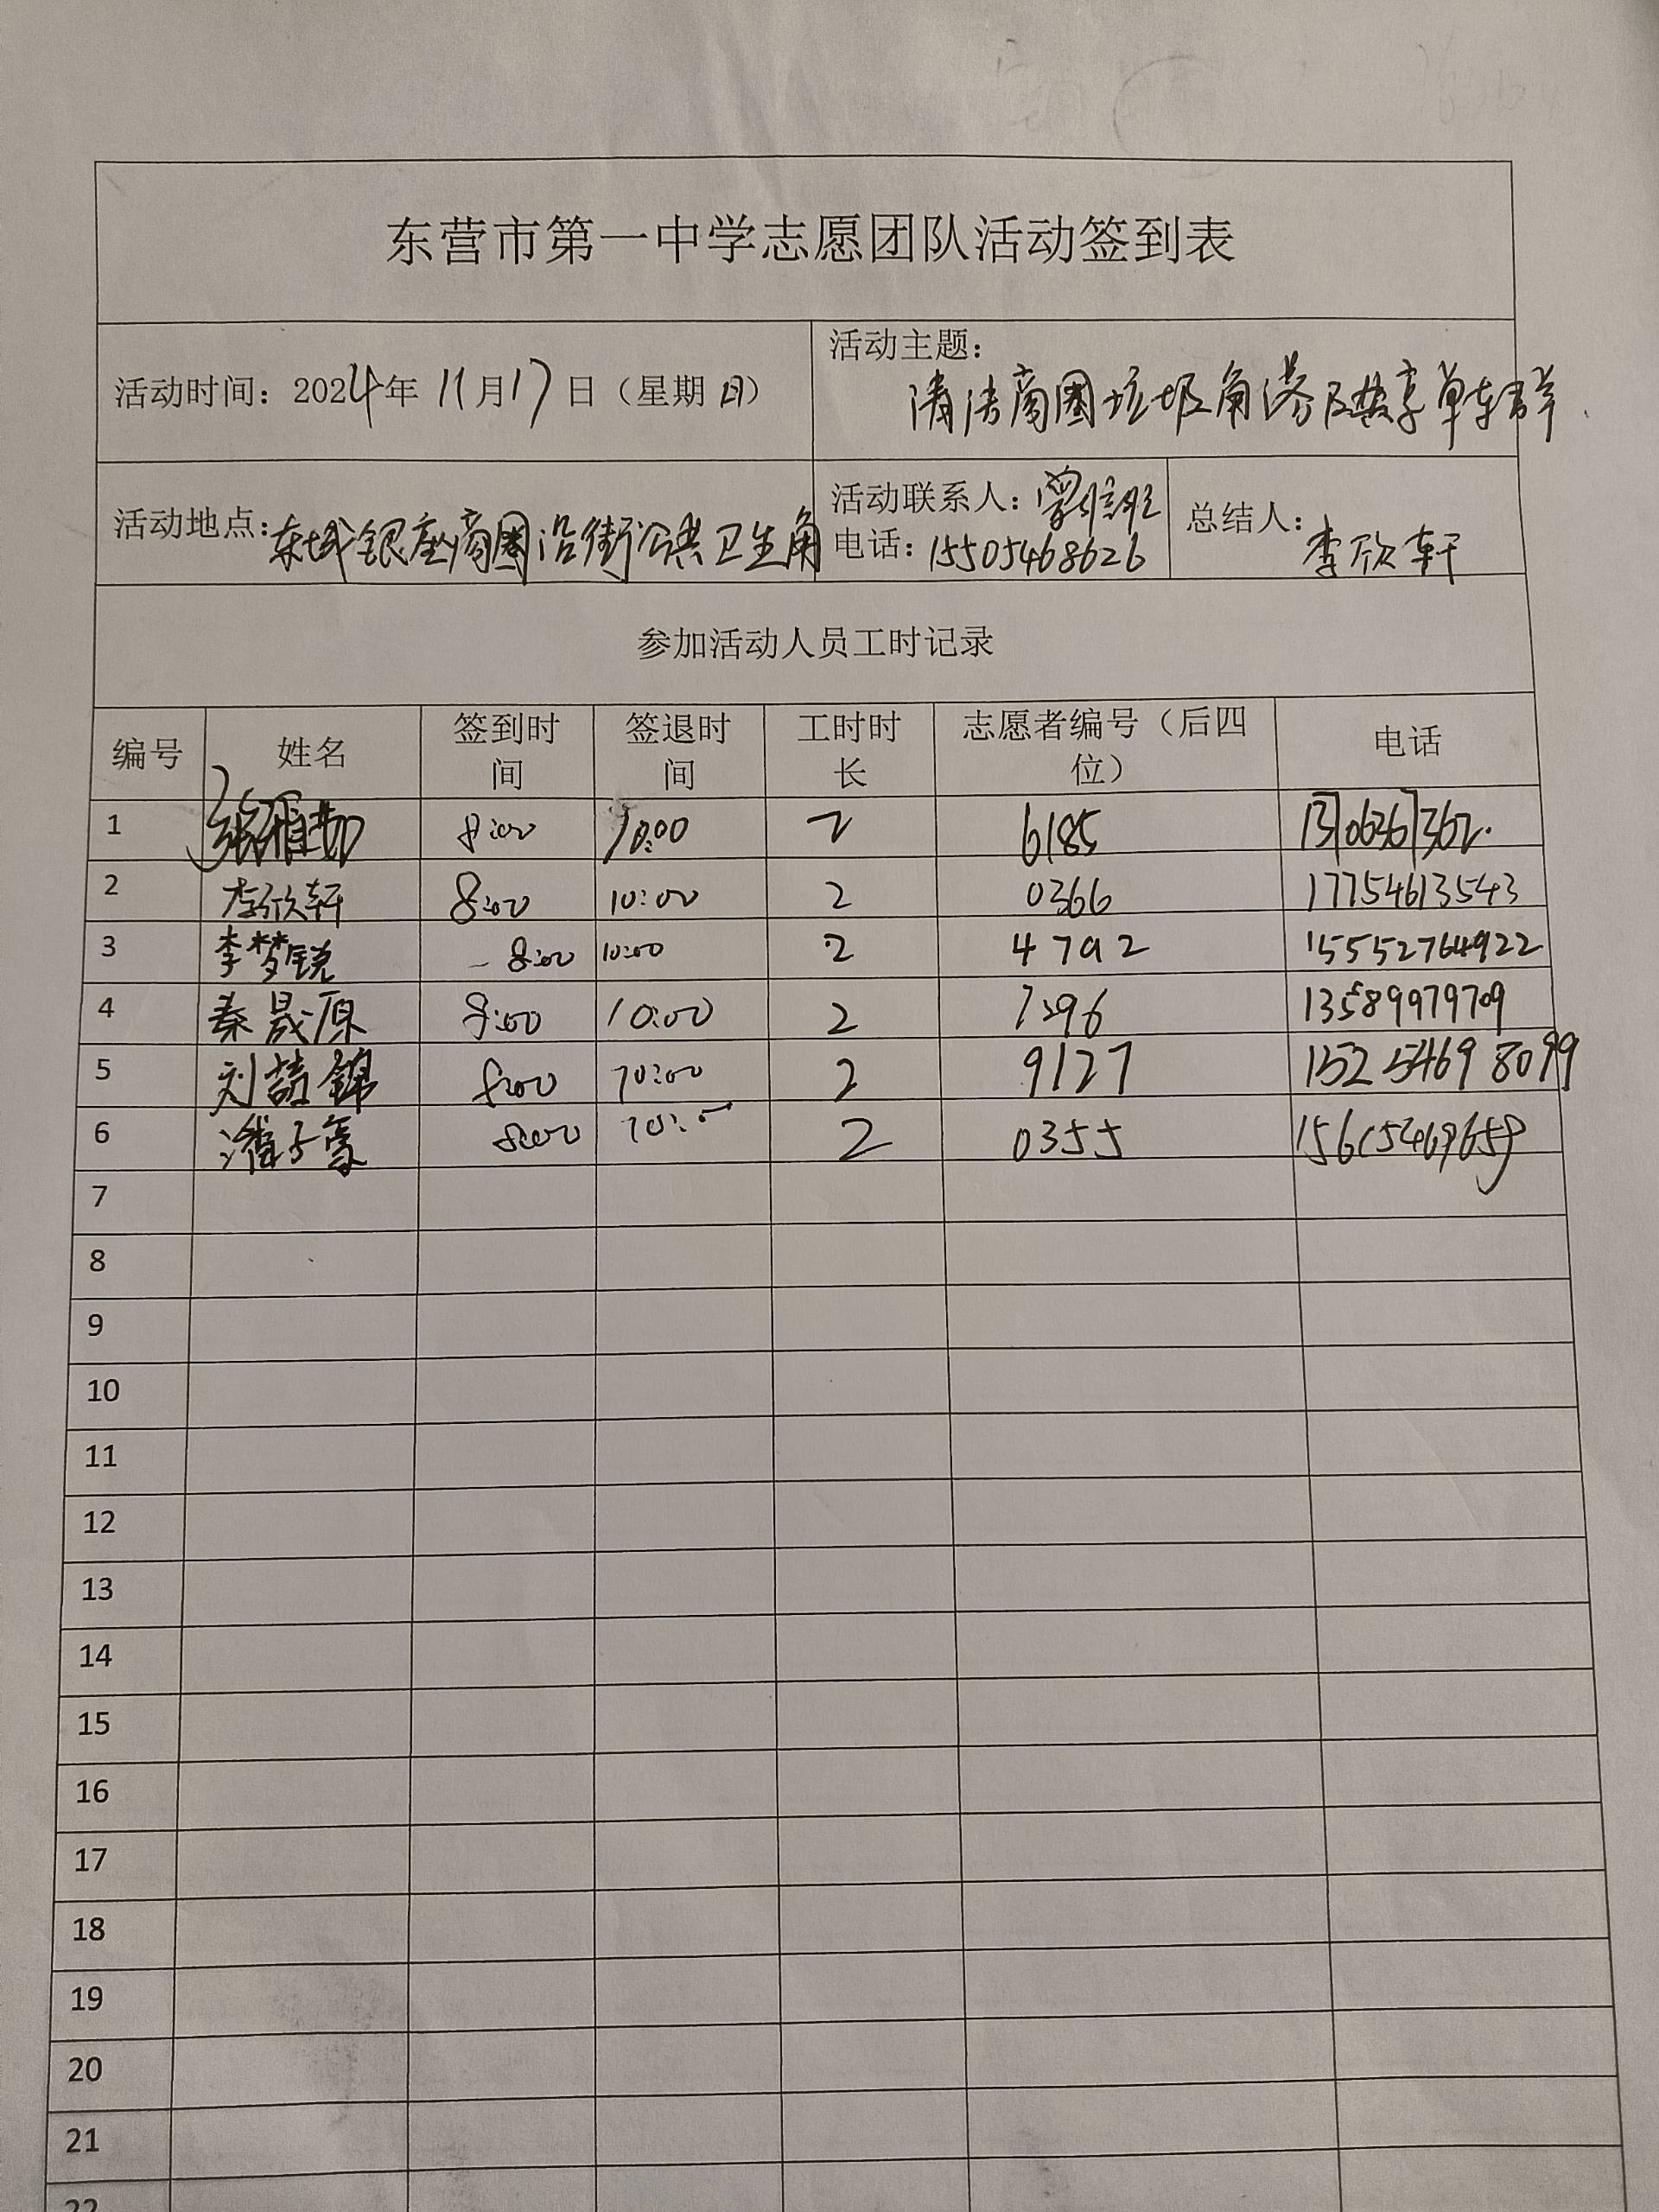 东营市第一中学志愿团队活动签到表
活动时间：2024年11月17日（星期日）
活动主题：
清洁商圈垃圾角落及共享单车群
活动地点：东城银座商圈沿街公共卫生角
活动联系人：
电话：15505468626
总结人：李欣轩
参加活动人员工时记录
编号 姓名 签到时间 签退时间 工时时长 志愿者编号（后四位） 电话
1 张雅茹 8:00 10:00 2 6185 13706367362
2 李欣轩 8:00 10:00 2 0366 17754613543
3 李梦锐 8:00 10:00 2 4792 15552764922
4 秦晟原 8:00 10:00 2 7296 13589979709
5 刘喆锦 8:00 10:00 2 9127 15254698099
6 潘子豪 8:00 10:00 2 0355 15615469659
7
8
9
10
11
12
13
14
15
16
17
18
19
20
21
22